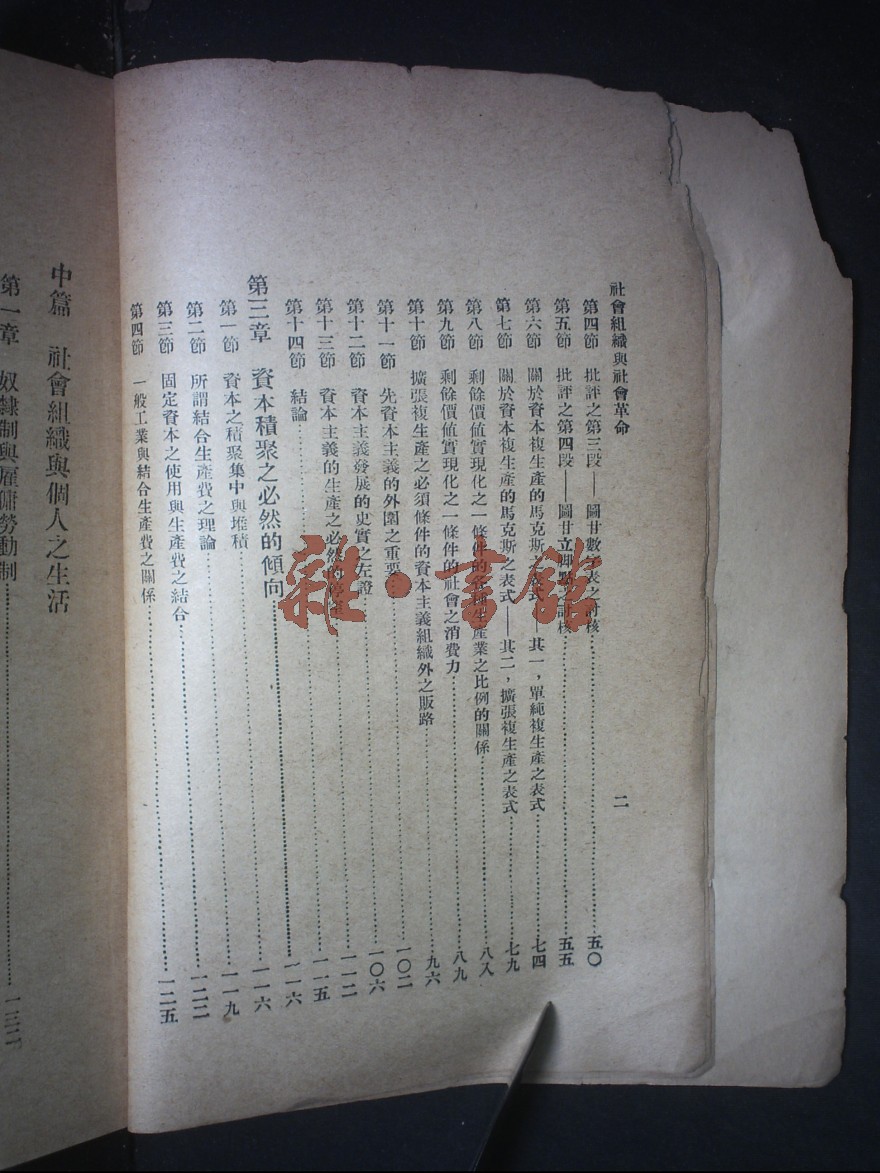 社會組織與社會革命
二
第四節 批評之第三段——圖甘數字表之核……五〇
第五節 批評之第四段——圖甘立脚點之核……五五
第六節 關於資本複生產的馬克斯之表式 其一，單純複生產之表式……七四
第七節 關於資本複生產的馬克斯之表式——其二，擴張複生產之表式……七九
第八節 剩餘價値實現化之一條件的各種生產業之比例的關係……八八
第九節 剩餘價値實現化之一條件的社會之消費力……八九
第十節 擴張複生產之必須條件的資本主義組織外之販路……九六
第十一節 先資本主義的外圍之重要……一〇二
第十二節 資本主義發展的史實之左證……一〇六
第十三節 資本主義的生產之必然的停……一一二
第十四節 結論……一一五
第三章 資本積聚之必然的傾向……一一六
第一節 資本之積聚集中與堆積……一一六
第二節 所謂結合生產費之理論……一一九
第三節 固定資本之使用與生產費之結合……一二二
第四節 一般工業與結合生產費之關係……一二五
中篇 社會組織與個人之生活
第一章 奴隸制與雇傭勞動制……一三二